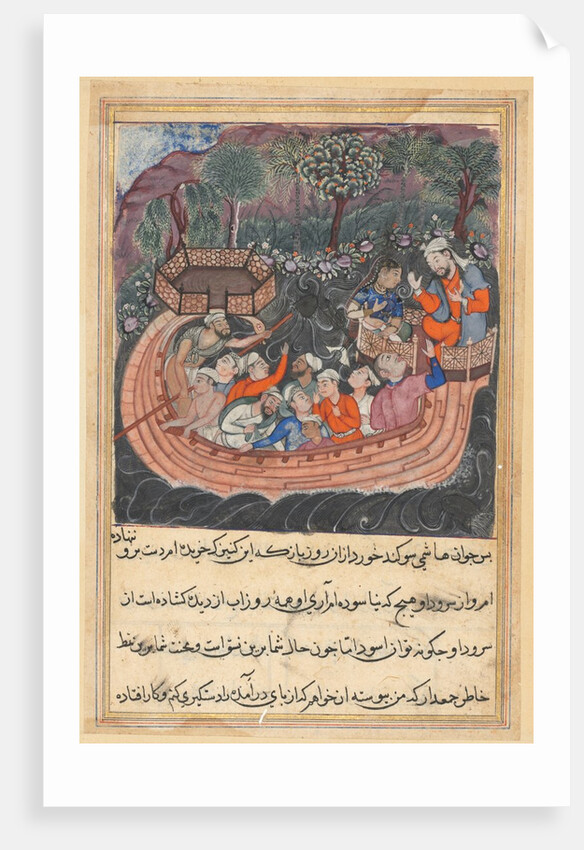 نهاده
پس جوان هاشمی سوکند خورد از ان روز باز که این کنیزک خریده ام دست برو
ام و از سرود او هیچ که نیاسوده ام آری او همه روز اب از دیده کشاده است از
سرود او چکونه توان اسود اما چون حال شما برین نسق است و محنت شما برین نمط
خاطر جمع دارکه من پیوسته ان خواهم که از پای در آمده را دست کیری کنم و کار افتاده